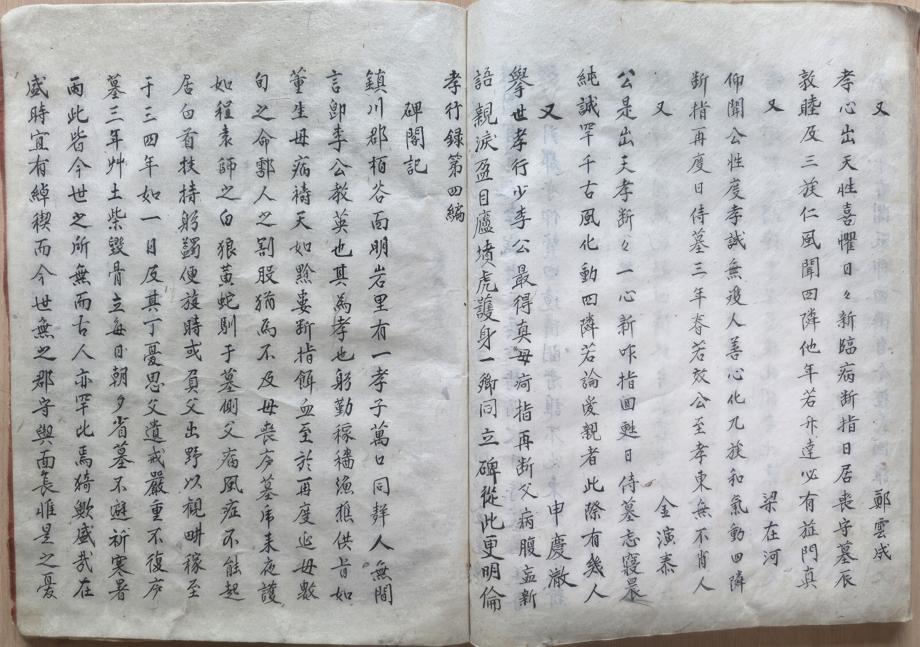 又
鄭雲成
孝心出天性喜懼日々新臨病断指日居喪守墓辰
敦睦及三族仁風聞四隣他年若升達必有益門真
又
梁在河
仰聞公性度孝誠無疑人善心化九族和氣動四隣
断指再度日侍墓三年春若效公至孝東無不肖人
又
金演泰
公是出天孝断々一心新咋指回甦日侍墓志寝晨
純誠罕千古風化動四隣若論愛親者此際有幾人
又
申慶澈
擧世孝行少李公最得真母病指再断父病腹嘗新
語親淚盈目廬墳虎護身一鄉同立碑從此更明倫
孝行録第四編
碑閣記
鎮川郡栢谷面明岩里有一孝子萬口同辭人無間
言卽李公教英也其為孝也躬勤稼穡漁樵供旨如
董生母病禱天如黔婁断指餌血至於再度延母數
旬之命鄠人之割股猶為不及母喪庐墓虎来夜護
如程袁師之白狼黃蛇馴于墓側父病風症不能起
居白首扶持躬蠲便旋時或負父出野以觀畊稼至
于三四年如一日及其丁憂思父遺戒嚴重不復庐
墓三年艸土柴毀骨立每日朝夕省墓不避祈寒暑
雨此皆今世之所無而古人亦罕比焉猗歟盛哉在
盛時宜有綽禊而今世無之郡守與面長惟是之憂